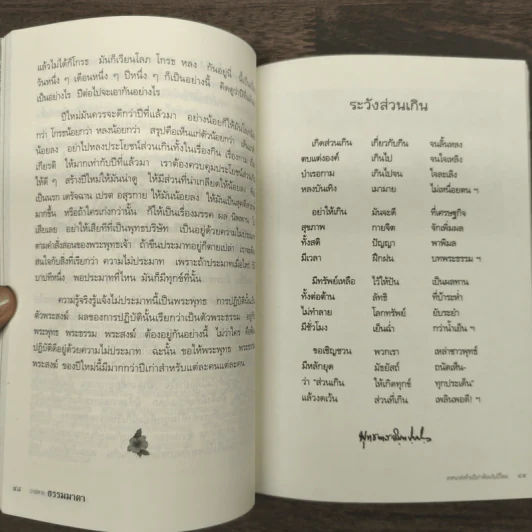 แล้วไม่ได้ก็โกรธ มันก็เวียนโลภ โกรธ หลง กันอยู่นี่
วันหนึ่ง ๆ เดือนหนึ่ง ๆ ปีหนึ่ง ๆ ก็เป็นอย่างนี้
เป็นอย่างไร ปีต่อไปจะเอากันอย่างไร
ปีใหม่มันควรจะดีกว่าปีที่แล้วมา อย่างน้อยก็ให้มัน
กว่า โกรธน้อยกว่า หลงน้อยกว่า สรุปคือเห็นแก่ตัวน้อยกว่า
น้อยลง อย่าไปหลงประโยชน์ส่วนเกินทั้งในเรื่องกิน เรื่องกาม
เกียรติ ให้มากเท่ากับปีที่แล้วมา เราต้องควบคุมประโยชน์ส่วน
ให้ดี ๆ สร้างปีใหม่ให้มันน่าดู ให้มีส่วนที่น่าเกลียดให้น้อยลง
เป็นนรก เดรัจฉาน เปรต อสุรกาย ให้มันน้อยลง ให้มันเป็น
มากขึ้น หรือถ้าใครเก่งกว่านั้น ก็ให้เป็นเรื่องมรรค ผล นิพพาน
เสียเลย อย่าให้เสียทีที่เป็นพุทธบริษัท เป็นอยู่ด้วยความไม่
ตามคำสั่งสอนของพระพุทธเจ้า ถ้าขืนประมาทอยู่ก็ตายเปล่า
สนใจกับสิ่งที่เรียกว่า ความไม่ประมาท เพราะถ้าประมาทเมื่อไหร่
บาปทีหนึ่ง พอประมาทที่ไหน มันก็มีทุกข์ที่นั้น
ความรู้จริงรู้แจ้งไม่ประมาทนี้เป็นพระพุทธ การปฏิบัตินั้น
ตัวพระสงฆ์ ผลของการปฏิบัตินั้นเรียกว่าเป็นตัวพระธรรม
พระพุทธ พระธรรม พระสงฆ์ ต้องอยู่กันอย่างนี้ ไม่ว่าใคร
ปฏิบัติดีอยู่ด้วยความไม่ประมาท ฉะนั้น ขอให้พระพุทธ พระธรรม
พระสงฆ์ ของปีใหม่นี้มีมากกว่าปีเก่าสำหรับแต่ละคนแต่ละคน
๔๘ ธรรมมาตา
ระวังส่วนเกิน
เกิดส่วนเกิน เกี่ยวกับกิน จนลิ้นหลง
ตบแต่งองค์ เกินไป จนใจเหลิง
บำรุงกาม เกินไปจน โจละเลิง
หลงบันเทิง เมามาย ไม่เหนื่อยตน ฯ
อย่าให้เกิน มันจะดี ที่เศรษฐกิจ
สุขภาพ กายจิต จักเพิ่มผล
ทั้งสติ ปัญญา พาพิมล
มีเวลา ฝึกฝน บทพระธรรม ฯ
มีทรัพย์เหลือ ไว้ให้ปัน เป็นผลทาน
ทั้งต่อต้าน ลัทธิ ที่บ้าระห่ำ
ไม่ทำลาย โลกทรัพย์ ยับระยำ
มีชั่วโมง เย็นฉ่ำ กว่าน้ำเย็น ฯ
ขอเชิญชวน พวกเรา เหล่าชาวพุทธ์
มีหลักยุด มัธยัสถ์ ถนัดเห็น-
ว่า "ส่วนเกิน ให้เกิดทุกข์ ทุกประเด็น"
แล้วงดเว้น ส่วนที่เกิน เพลินพอดี! ฯ
๔๙